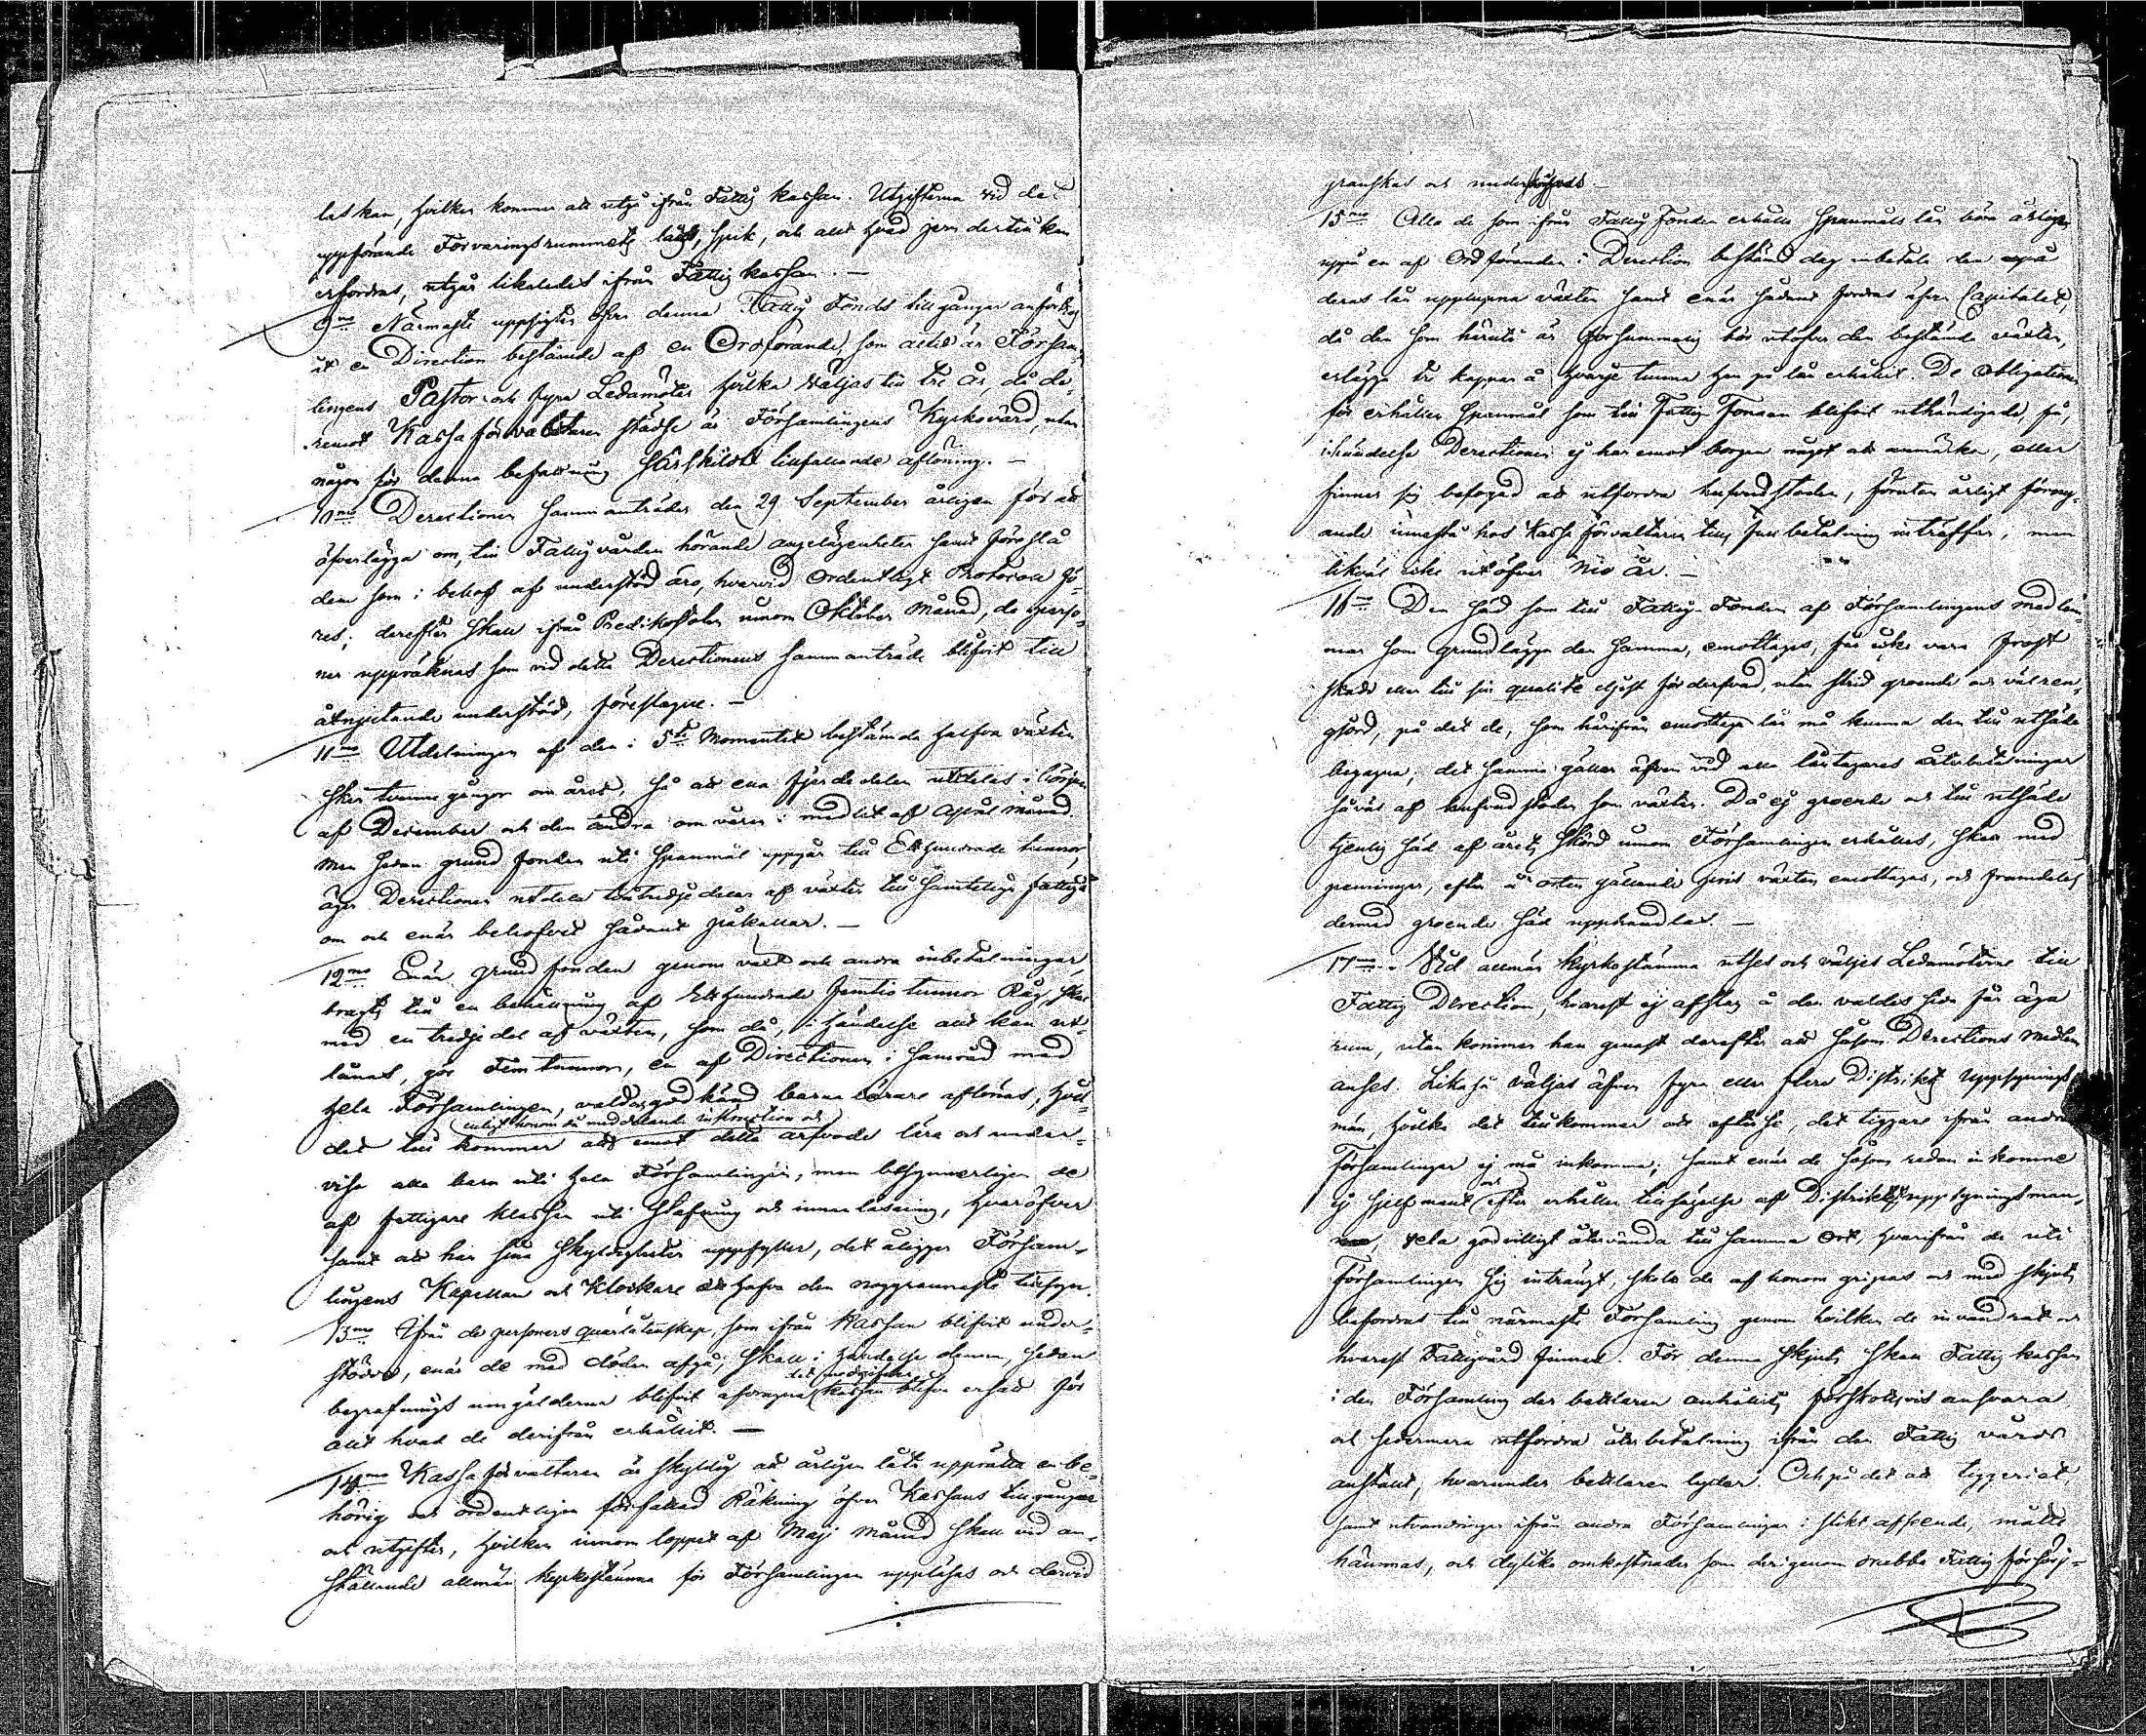 las kan, hvilken kommer att utgå ifrån Fattig kassan. Utgifterna vid det
uppförande Förvaringsrummets lås, spik, och allt hvad jern dertill kan
erfordras, utgår likaledes ifrån Fattig kassan. —
9no Närmaste uppsigten öfver denna Fattig Fonds tillgångar anförtros
åt en Direction bestående af en Ordförande, som alltid är Försam-
lingens Pastor och fyra Ledamöter hvilka väljas till tre år, då de-
remot Kassaförvaltaren städse är Församlingens Kyrkovärd, utan
någon för denna befattning särskildt tillfallande aflöning. —
10mo Derectionen sammanträder den 29 September årligen för att
öfverlägga om, till Fattigvården hörande angelägenheter samt föreslå
dem som i behof af understöd äro, hvarvid Ordentligt Protocoll fö-
res; derefter skall ifrån Predikostolen innom Oktober Månad, de perso-
ner uppräknas som vid detta Derectionens sammanträde blifvit till
åtnjutande understöd, föreslagne. —
11mo Utdelningen af den i 5te Momentet bestämda halfva växten
sker tvenne gånger om året, så att ena fjerdedelen utdelas i början
af December och den andra om våren i medlet af April månad
men sedan grund fonden uti Spannmål uppgår till Etthundrade tunnor,
äger Derectionen utdela två tredjedelar af växten till samtelige fattiga
om och enär behofvet sådant påkallar. —
12mo Enär grund fonden genom växt och andra inbetalningar
bragts till en behållning af Etthundrade femtio tunnor Råg, skall
med en tredjedel af växten, som då, i händelse allt kan ut-
lånas, gör Fem tunnor, en af Directionen i samråd med
hela Församlingen, vald och godkänd barna lärare aflönas, hvil-
enligt honom då meddelande instruction och
det till kommer att emot detta arfvode lära och under-
visa alla barn uti hela Församlingen, men besynnerligen de
af fattigare klassen uti stafning och innanläsning, hvaröfver
samt att han sina skyldigheter uppfyller, det åligger Försam-
lingens Kapellan och Klockare att hafva den noggrannaste tillsyn.
13mo Ifrån de personers quarlåtenskap, som ifrån Kassan blifvit under-
stödde, enär de med döden afgå, skall i händelse denna, sedan
begrafnings umgälderna blifvit afdragna kassan blifva ersatt för
allt hvad de derifrån erhållit. —
14mo Kassaförvaltaren är skyldig att årligen låta upprätta en be-
hörig och ordentligen författad Räkning öfver Kassans tillgångar
och utgifter, hvilken innom loppet af Maji månad skall vid an-
ställande allmän kyrkostämma för Församlingen uppläsas och dervid
granskas och underskrifvas. —
15mo Alla de som ifrån Fattig Fonden erhålla Spannmåls lån böra årligen
uppå en af Ordföranden i Direction bestämd dag inbetala den uppå
deras lån upplupna växten samt enär sådant fordras äfven Capitalet,
då den som häruti är försummelig bör utöfver den bestämda växten,
erlägga tre kappar å hvarje tunna han på lån erhållit. De Obligationer
för erhållen Spannmål som till Fattig Fonden blifvit uthändigade, få,
i händelse Derectionen ej har emot borgen något att anmärka, eller
finner sig befogad att utfordra hufvudstolen, förutan årligt förny-
ande innestå hos Kassa förvaltaren tills full betalning inträffar, men
likväl icke utöfver Nio år. —
16mo Den säd som till Fattig-Fonden af Församlingens medlem-
mar som grundlägga den samma, emottages, får icke vara frost
skadd eller till sin qualité eljest förderfvad, utan strid groende och väl ren-
gjord, på det de, som härifrån emottaga lån må kunna den till utsäde
begagna; det samma gäller äfven vid alla låntagares återbetalningar
såväl af hufvudstolen som växten. Då ej groende och till utsäde
tjenlig säd af årets skörd innom Församlingen erhålles, skall med
penningar, efter å orten gällande pris växten emottagas, och framdeles
dermed groende säd upphandlas. —
17mo Vid allmän Kyrkostämma utses och väljes Ledamöterne till
Fattig Direction, hvarest ej afslag å den valdes sida får äga
rum, utan kommer han genast derefter att såsom Derections Medlem
anses. Likaså väljas äfven fyra eller flere Distrikts Uppsynings-
män, hvilka det tillkommer att eftersé, det tiggare ifrån andra
Församlingar ej må inkomma, samt enär de såsom redan inkomne
ej sjelfmant efter erhållen tillsägelse af Distrikts uppsyningsman-
nen, vela godvilligt återvända till samma Ort, hvarifrån de uti
Församlingen sig inträngt, skola de af honom gripas och med skjuts
befordras till närmaste Församling genom hvilken de invandrat och
hvarest Fattigvård finnes. För denna skjuts skall Fattig kassan
i den Församling der bettlaren anhållits förskottsvis ansvara
och sedermera utfordra återbetalning ifrån den Fattig vårds
anstalt, hvarunder bettlaren lyder. Och på det att tiggeriet,
samt utvandringar ifrån andra Församlingar i slikt afseende, måtte
hämmas, och dylika omkostnader som derigenom drabba Fattig försörj-